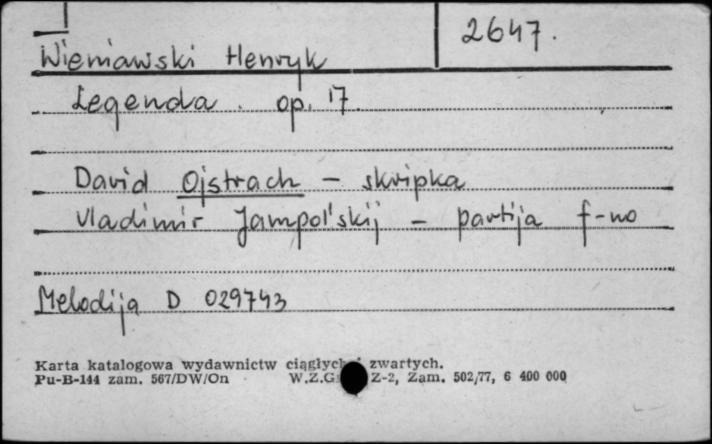 2647.
Wieniawski Henryk
Legenda . op. 17
David Ojstrach – skripka
Vladimir Jampol'skij – partija f-no
Melodija D 029743
Karta katalogowa wydawnictw ciągłych i zwartych.
Pu-B-144 zam. 567/DW/On W.Z.G. Z-2, Zam. 502/77, 6 400 000